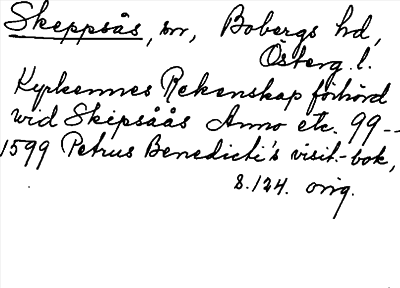 Skeppsås, sn, Bobergs hd,
Österg. l.
Kyrkennes Rekenskap förhörd
wid Skipsåås Anno etc. 99 --
1599 Petrus Benedicti's visit.-bok,
s. 124. orig.